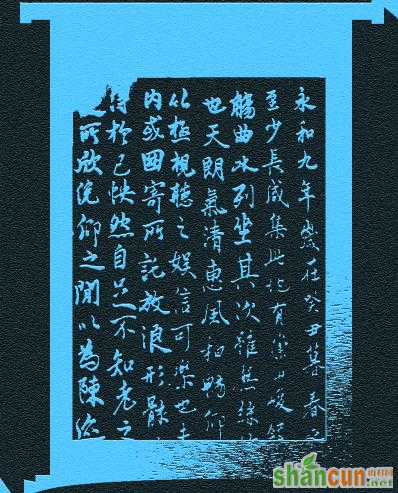 永和九年歲在癸丑暮春之
至少長咸集此地有崇山峻領
觴曲水列坐其次雖無絲竹
也天朗氣清惠風和暢仰
以極視聽之娛信可樂也夫
內或因寄所託放浪形骸
得於己怏然自足不知老之
所欣俛仰之閒以為陳迹
shancun
.net